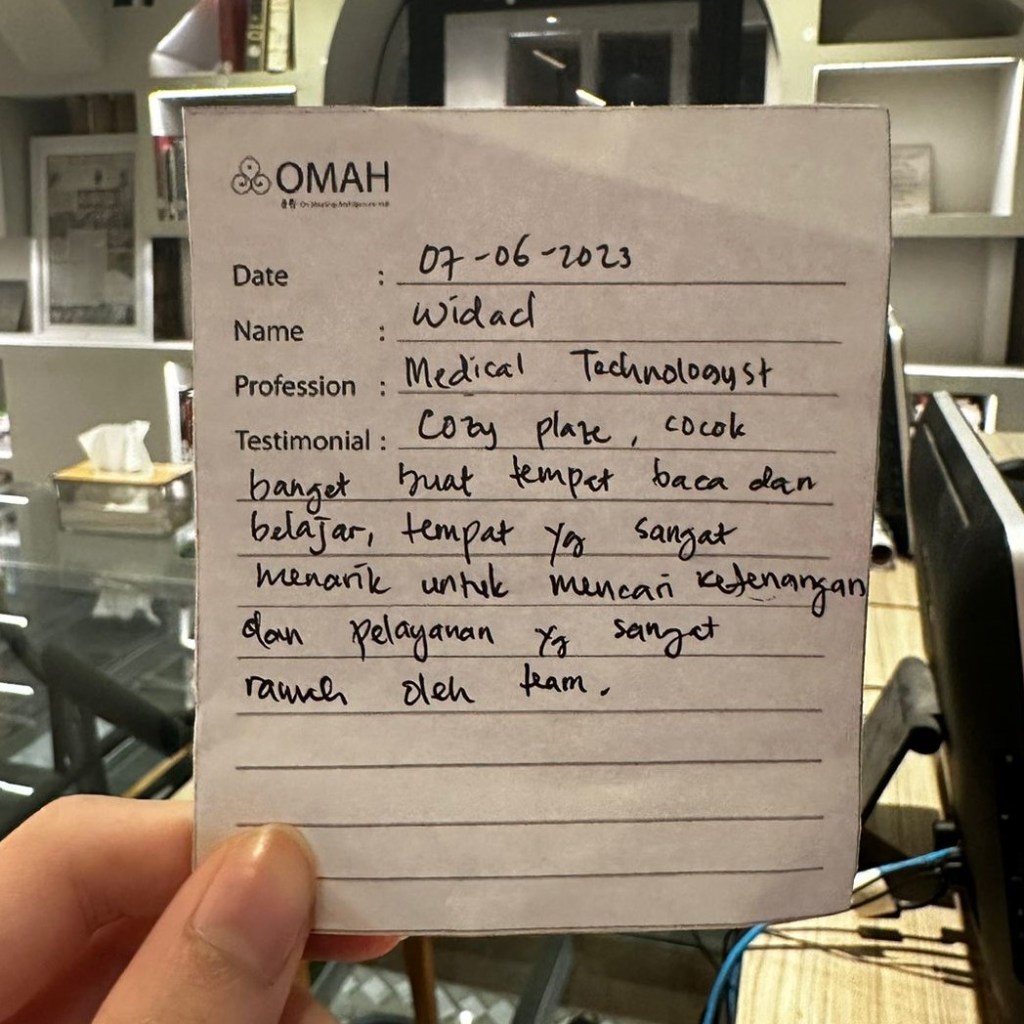 OMAH
Date : 07-06-2023
Name : Widad
Profession : Medical Technologyst
Testimonial : Cozy plaze, cocok
banget buat tempat baca dan
belajar, tempat yg sangat
menarik untuk mencari ketenangan
dan pelayanan yg sangat
ramah oleh team.